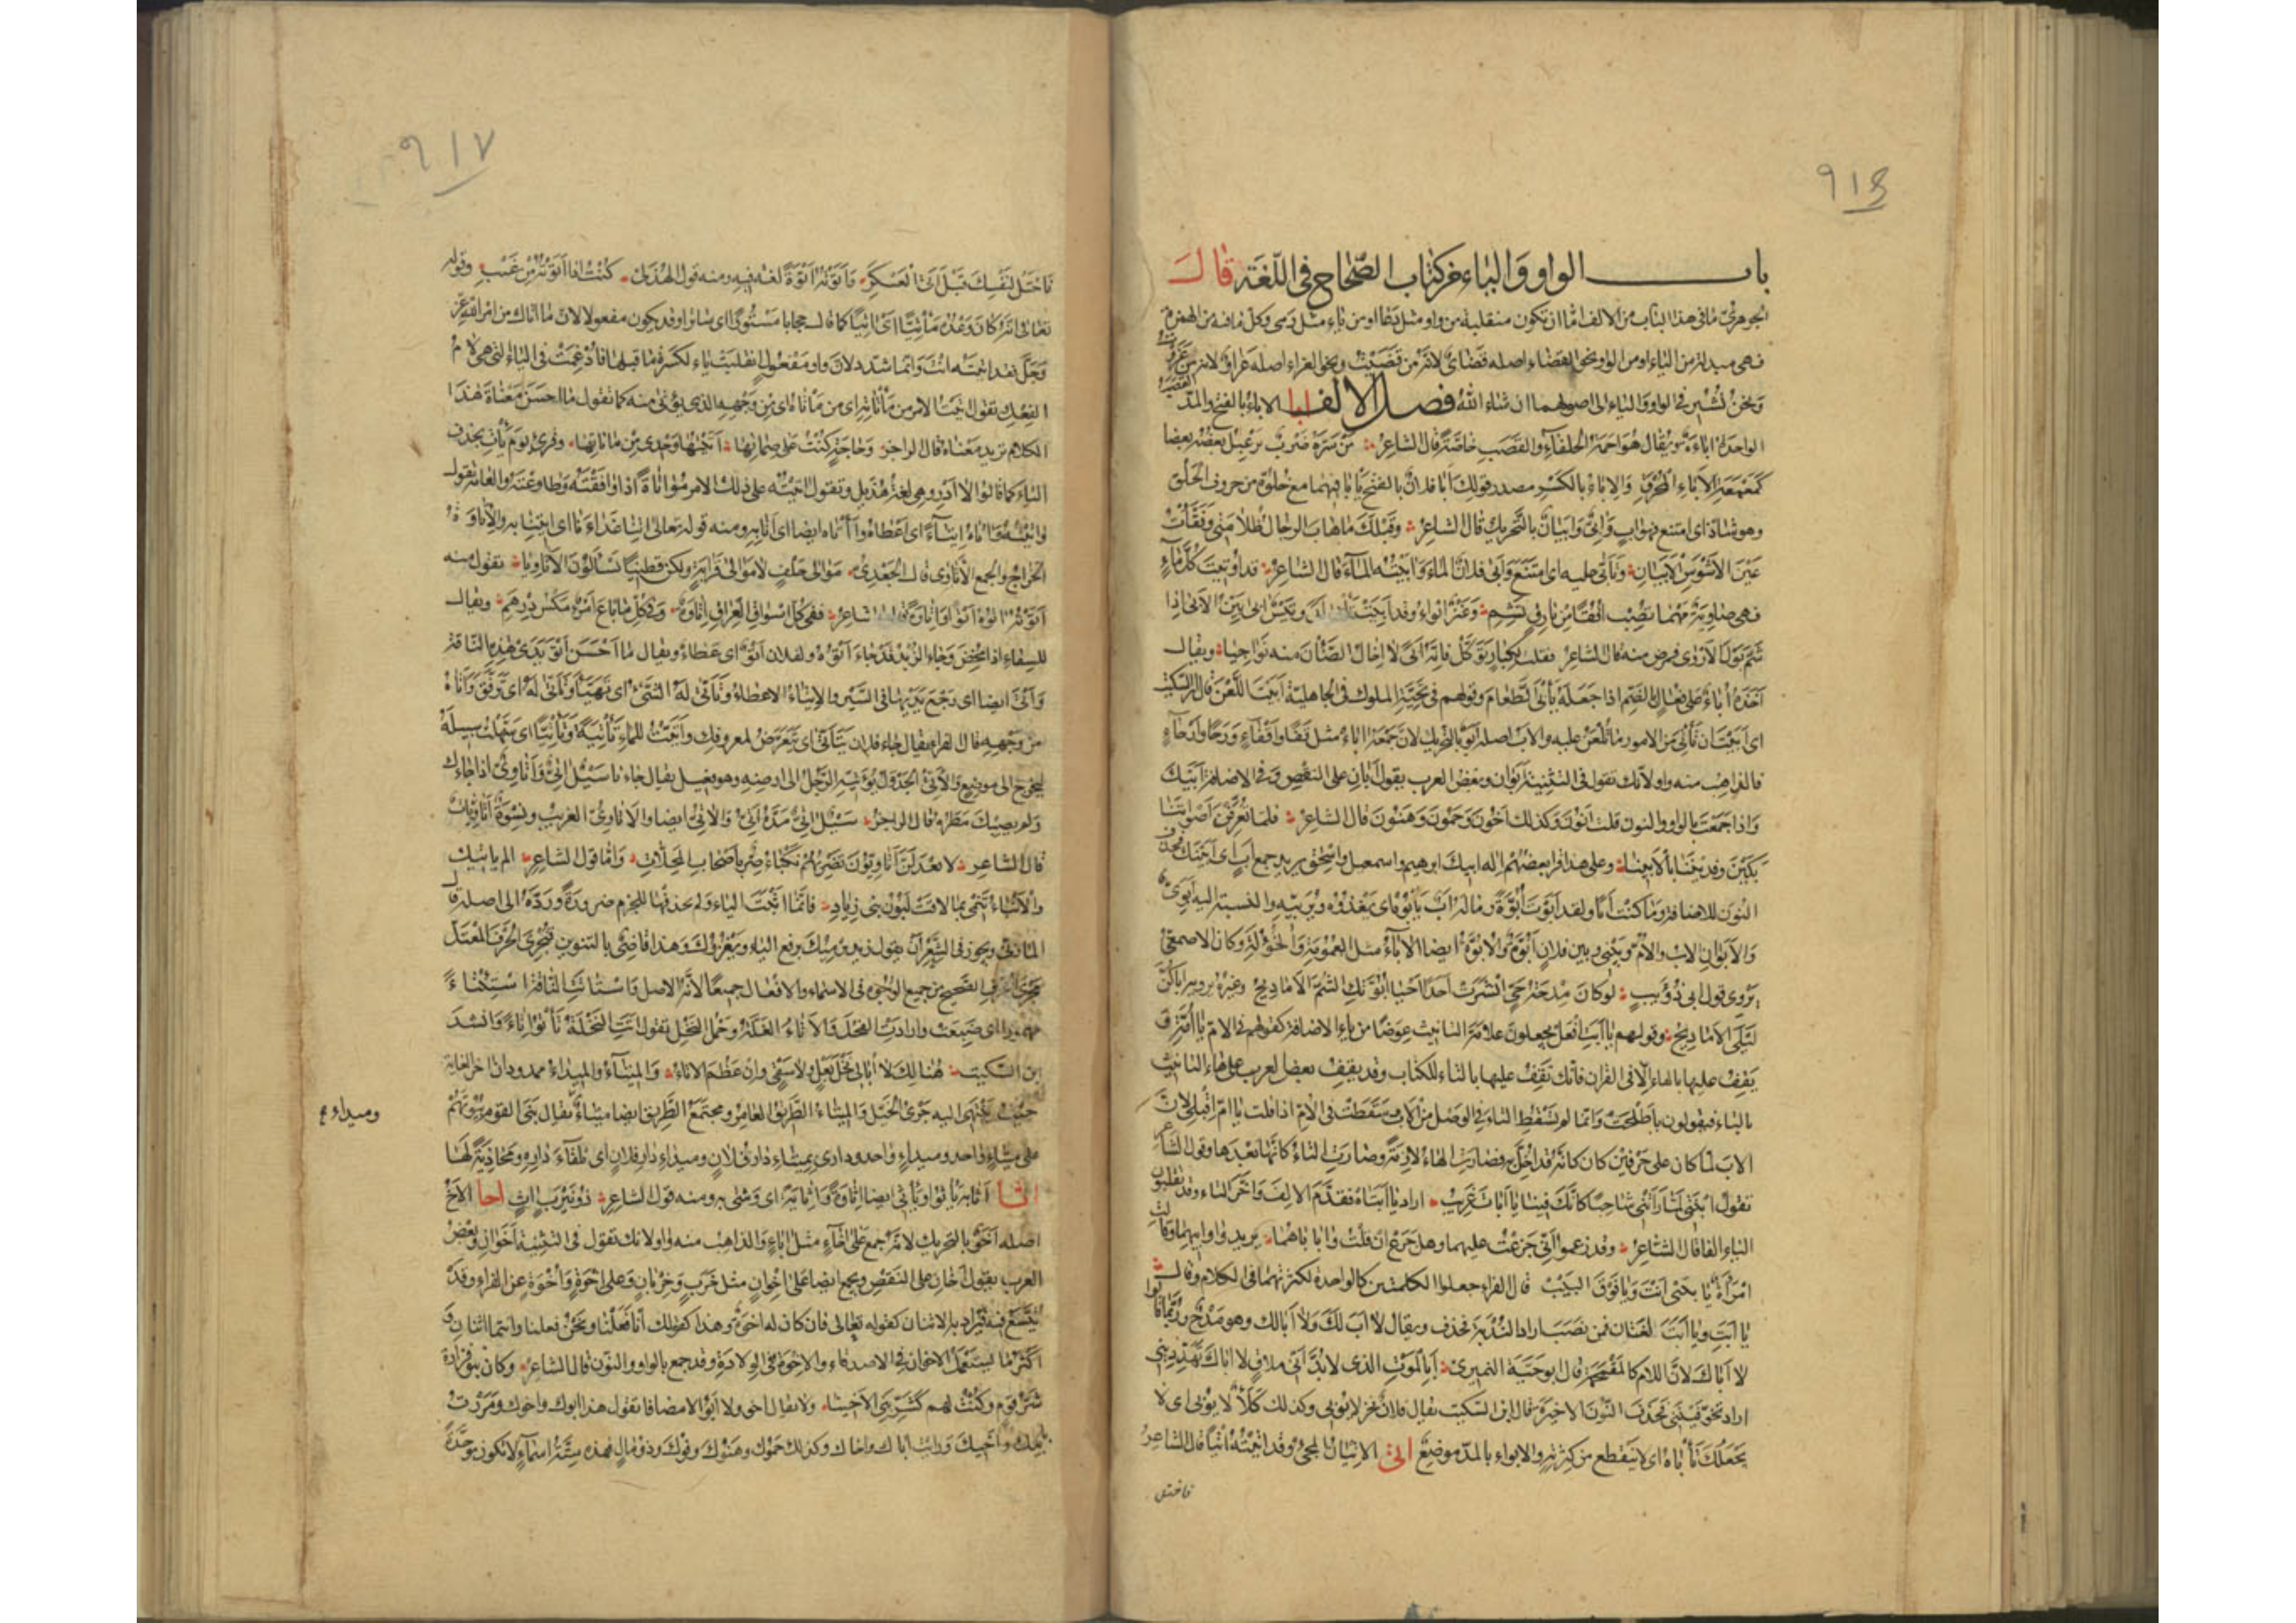 ٩١٦
باب الواو والياء من كتاب الصحاح في اللغة قال
الجوهري ما في هذا الباب من الالف اما ان تكون منقلبة من واو مثل دعا او من ياء مثل رمى وكل ما فيه من الهمزة
فهي مبدلة من الياء او من الواو نحو القضاء اصله قضاى لانه من قضيت ونحو العزاء اصله عزاو لانه من عزوت
ونحن نشير في الواو والياء الى اصولهما ان شاء الله فصل الالف ابا الاباء بالفتح والمد القصب
الواحدة اباءة ويقال هو اجمة الحلفاء والقصب خاصة قال الشاعر من سره ضرب يرعبل بعضه بعضا
كمعمعة الاباء المحرق والاباء بالكسر مصدر قولك ابا فلان بالفتح يابا فيهما مع خلوه من حروف الحلق
وهو شاذ اى امتنع فهو اب وابي وابيان بالتحريك قال الشاعر وقبلك ما هاب الرجال ظلامتي وفقأت
عين الاشوس الابيان وتأبى عليه اى امتنع وابى فلان الماء وابيته الماء قال الشاعر قد اوبيت كل ماء
فهى صاوية مهما تصب افقا من بارق تشم وعنز ابواء وقد ابيت تأبى ابى وتيس ابى بين الابى اذا
شم بول الاروى فمرض منه قال الشاعر فقلت لكناز توكل فانه ابى لا اخال الضأن منه نواجيا ويقال
اخذه اباء على فعال بالضم اذا جعل يأبى الطعام وقولهم في تحية الملوك في الجاهلية ابيت اللعن قال ابن السكيت
اى ابيت ان تأتى من الامور ما تلعن عليه والاب اصله ابو بالتحريك لان جمعه اباء مثل قفا واقفاء ورحا وارحاء
فالذاهب منه واو لانك تقول في التثنية ابوان وبعض العرب يقول ابان على النقص وفي الاضافة ابيك
واذا جمعت بالواو والنون قلت ابون وكذلك اخون وحمون وهنون قال الشاعر فلما تعرفن اصواتنا
بكين وفديننا بالابينا وعلى هذا قرا بعضهم اله ابيك ابرهيم واسمعيل واسحق يريد جمع اب اى ابينك فحذف
النون للاضافة وما كنت ابا ولقد ابوت ابوة وما له اب يأبوه اى يغذوه ويربيه والنسبة اليه ابوى
والابوان الاب والام وبيني وبين فلان ابوة والابوة ايضا الاباء مثل العمومة والخؤلة وكان الاصمعي
يروى قول ابى ذؤيب لو كان مدحة حى انشرت احدا احيا ابوتك الشم الاماديح وغيره يرويه اباكن
ليلى الاماديح وقولهم يا ابت افعل يجعلون علامة التانيث عوضا من ياء الاضافة كقولهم في الام يا امة وتقف
يقف عليها بالهاء الا في القران فانك تقف عليها بالتاء للكتاب وقد يقف بعض العرب على هاء التانيث
بالتاء فيقولون يا طلحت وانما لم تسقط التاء في الوصل من الاب وسقطت في الام اذا قلت يا ام اقبلى لان
الاب لما كان على حرفين كان كانه قد اخل به فصارت الهاء لازمة وصارت التاء كانها بعدها وقول الشاعر
تقول ابنتى لما راتنى شاحبا كانك فينا يا ابات غريب اراد يا ابتاه فقدم الالف واخر التاء وقد يقلبون
الياء الفا قال الشاعر وقد زعموا انى جزعت عليهما وهل جزع ان قلت وا بابا هما يريد وا بابيهما وقالت
امراة يا بيبى انت ويا فوق البيب قال الفراء جعلوا الكلمتين كالواحدة لكثرتهما في الكلام وقالوا
يا ابت ويا ابت لغتان فمن نصب اراد الندبة فحذف ويقال لا اب لك ولا ابا لك وهو مدح وربما قالوا
لا اباك لان اللام كالمقحمة قال ابو حية النميرى ابالموت الذى لا بد انى ملاق لا اباك تخوفيني
اراد تخوفينني فحذف النون الاخيرة قال ابن السكيت يقال فلان بحر لا يؤبى وكذلك كلأ لا يؤبى اى لا
يجعلك تأباه اى لا ينقطع من كثرته والابواء بالمد موضع اتى الاتيان المجئ وقد اتيته اتيا قال الشاعر
فاختل
٩١٧
فاحتل لنفسك قبل اتى العسكر واتوته اتوة لغة فيه ومنه قول الهذلى كنت اذا اتوته من غيب وقوله
تعالى انه كان وعده مأتيا اى اتيا كما قال حجابا مستورا اى ساترا وقد يكون مفعولا لان ما اتاك من امر الله عز
وجل فقد اتيته انت وانما شدد لان واو مفعول انقلبت ياء لكسرة ما قبلها فادغمت في الياء التى هى لام
الفعل تقول اتيت الامر من مأتاته اى من مأتاه اى من وجهه الذى يؤتى منه كما تقول ما احسن معناة هذا
الكلام تريد معناه قال الراجز وحاجة كنت على صماتها اتيتها وحدى من مأتاتها وقرئ يوم يأت بحذف
الياء كما قالوا لا ادر وهى لغة هذيل وتقول اتيته على ذلك الامر مؤاتاة اذا وافقته وطاوعته والعامة تقول
واتيته واتاه ايتاء اى اعطاه وآتاه ايضا اى اتى به ومنه قوله تعالى اتنا غداءنا اى ائتنا به والاتاوة
الخراج والجمع الاتاوى قال الجعدى موالى حلف لا موالى قرابة ولكن قطينا يسألون الاتاويا تقول منه
اتوته اتوه اتوا واتاوة قال الشاعر ففى كل اسواق العراق اتاوة وفى كل ما باع امرؤ مكس درهم ويقال
للسقاء اذا مخض وجاء الزبد قد جاء اتوه ولفلان اتو اى عطاء ويقال ما احسن اتو يدى هذه الناقة
واتى ايضا اى رجع يديها في السير والايتاء الاعطاء وتأتى له الشئ اى تهيأ وتأتى له اى ترفق واتاه
من وجهه قال الفراء يقال جاء فلان يتأتى اى يتعرض لمعروفك واتيت للماء تأتية وتأتيا اى سهلت سبيله
ليخرج الى موضع والاتى الجدول يؤتيه الرجل الى ارضه وهو فعيل يقال جاءنا سيل اتى واتاوى اذا جاءك
ولم يصبك مطره قال الراجز سيل اتى مده اتى والاتى ايضا والاتاوى الغريب ونسوة اتاويات
قال الشاعر لا تعدلن اتاويون تضربهم نكباء صر باصحاب المحلات واما قول الشاعر الم يأتيك
والانباء تنمى بما لاقت لبون بنى زياد فانما اثبت الياء ولم يحذفها للجزم ضرورة ورده الى اصله قال
المازنى ويجوز في الشعر ان يقول زيد يرميك برفع الياء ويغزوك وهذا قاضى بالتنوين فتجرى الحرف المعتل
مجرى الحرف الصحيح من جميع الوجوه في الاسماء والافعال جميعا لانه الاصل واستأتت الناقة استئتاء
مهموز اى ضبعت وارادت الفحل والاتاء الغلة وحمل النخل تقول اتت النخلة تأتو اتاء وانشد
ابن السكيت هنالك لا ابالى نخل بعل ولا سقى وان عظم الاتاء والميتاء والميداء ممدودان اخر الغاية
حيث ينتهى اليه جرى الخيل والميتاء الطريق العامر ومجتمع الطريق ايضا ميتاء يقال بنى القوم بيوتهم
وميداء
على ميتاء واحد وميداء واحد ودارى بميتاء دار فلان وميداء دار فلان اى تلقاء داره ومحاذية لها
اثا اثا به يأثو ويأثى ايضا اثاوة واثاية اى وشى به ومنه قول الشاعر ذو نيرب اث اخا الاخ
اصله اخو بالتحريك لانه جمع على اخاء مثل اباء والذاهب منه واو لانك تقول في التثنية اخوان وبعض
العرب يقول اخان على النقص ويجمع ايضا على اخوان مثل خرب وخربان وعلى اخوة واخوة عن الفراء وقد
يتسع فيه فيراد به الاثنان كقوله تعالى فان كان له اخوة وهذا كقولك انا فعلنا ونحن فعلنا وانتما اثنان و
اكثر ما يستعمل الاخوان في الاصدقاء والاخوة في الولادة وقد جمع بالواو والنون قال الشاعر وكان بنو فزارة
شر قوم وكنت لهم كشر بنى الاخينا ولا يقال اخى ولا ابو الا مضافا تقول هذا ابوك واخوك ومررت
بابيك واخيك ورايت اباك واخاك وكذلك حموك وهنوك وفوك وذو مال فهذه ستة اسماء لا تكون موحدة